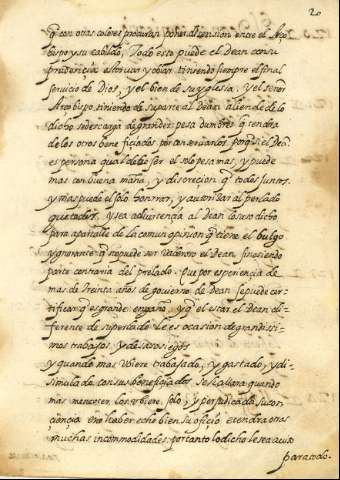 20
q̃ con otras colores procuran poner disension entre el Arço
bispo y su cabildo, Todo esto puede el Dean con su
prudencia estoruar y obiar, tiniendo siempre el final
seruicio de Dios, y el bien de su yglesia, y el señor
Arçobispo, tiniendo de su parte al Dean aliende de lo
dicho se descarga de grandes pesadumbres q̃ tendra
de los otros beneficiados por conseruarlos, porq̃ si el Deã
es persona qual debe ser el solo pesa mas, y puede
mas con buena maña, y discrecion q̃ todos Juntos,
y mas puede el solo honrrar, y autorizar al perlado
y sea aduertencia al Dean lo suso dicho
para apartalle de la comun opinion q̃ tiene el bulgo
ygnorante q̃ no puede ser el Dean, sino siendo
parte contraria del prelado, que por esperiencia de
mas de treinta años de gouierno de Dean se puede cer-
tificar q̃ es grande engaño, y q̃ el estar el Dean di-
ferente de su perlado le es ocasion de grandissi-
mos trabajos, y desasosiegos
y quando mas vbiere trabajado, y gastado, y di-
simulado con sus beneficiados se hallara quando
mas menester los vbiere, solo, y perjudicada su con-
ciençia en haber echo bien su oficio, e tendra otras
muchas incommodidades, por tanto lo dicho le sea auiso
para todo.